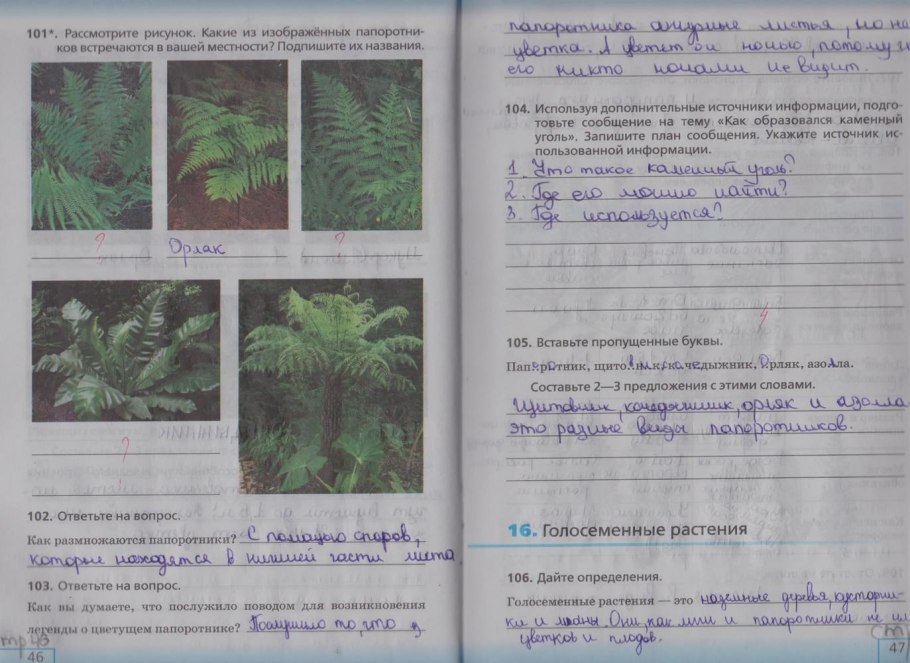 101*. Рассмотрите рисунок. Какие из изображённых папоротни-
ков встречаются в вашей местности? Подпишите их названия.
?
Орлак
?
?
102. Ответьте на вопрос.
Как размножаются папоротники? С помощью споров,
которые находятся в нижней части листа
103. Ответьте на вопрос.
Как вы думаете, что послужило поводом для возникновения
легенды о цветущем папоротнике? Послужило то, что у
стр 46
46
папоротника ажурные листья, но не
цветка. А цветет он ночью, потому
его никто ночами не видит.
104. Используя дополнительные источники информации, подго-
товьте сообщение на тему «Как образовался каменный
уголь». Запишите план сообщения. Укажите источник ис-
пользованной информации.
1. Что такое каменный уголь?
2. Где его можно найти?
3. Где используется?
4
105. Вставьте пропущенные буквы.
Папоротник, щитовник, кочедыжник, Орляк, азолла.
Составьте 2—3 предложения с этими словами.
Щитовник, кочедыжник, орляк и азолла
это разные виды папоротников.
16. Голосеменные растения
106. Дайте определения.
Голосеменные растения — это наземные деревья, кустарни-
ки и лианы. Они, как мхи и папоротники не
цветков и плодов.
47